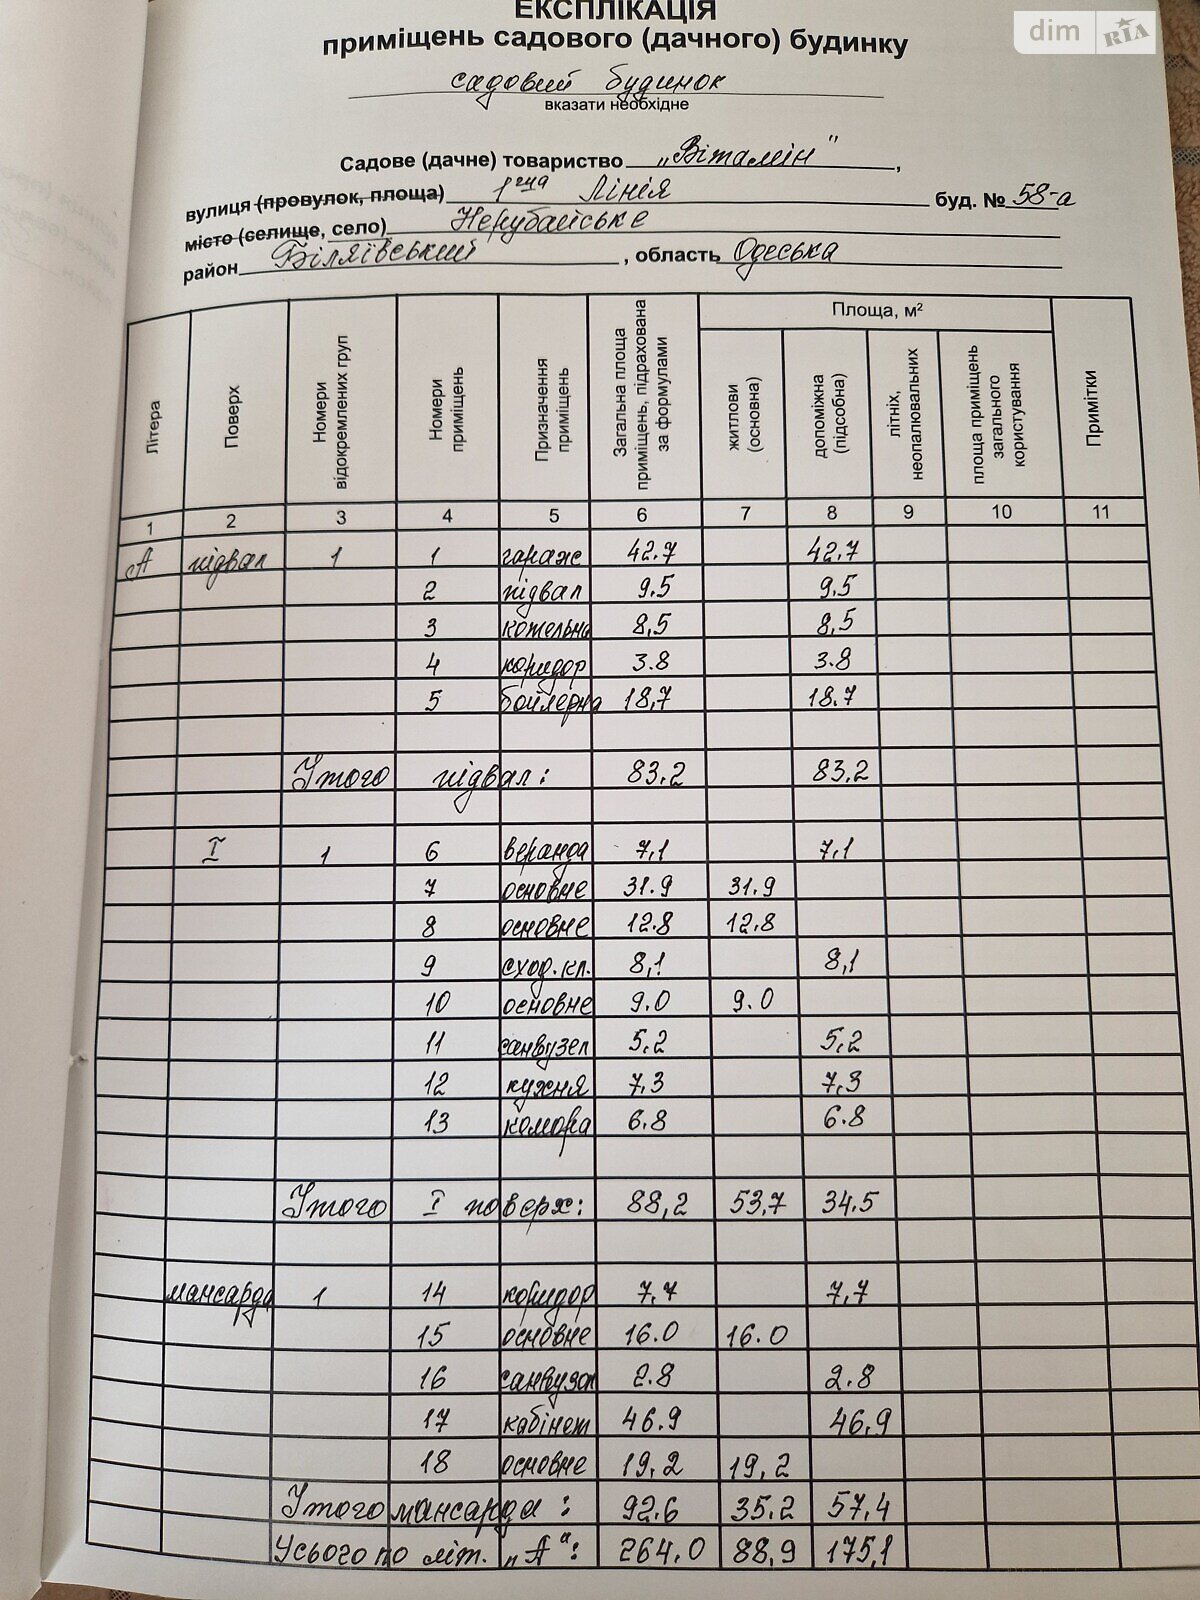 ЕКСПЛІКАЦІЯ
dim RIA
приміщень садового (дачного) будинку
садовий будинок
вказати необхідне
Садове (дачне) товариство „Вітамін",
вулиця (провулок, площа) 1ша Лінія буд. № 58-а
місто (селище, село) Нерубайське
район Біляївський, область Одеська
Літера Поверх Номери відокремлених груп Номери приміщень Призначення приміщень Загальна площа приміщень, підрахована за формулами Площа, м² Примітки
житлови (основна) допоміжна (підсобна) літніх, неопалювальних площа приміщень загального користування
1 2 3 4 5 6 7 8 9 10 11
А підвал 1 1 гараж 42.7 42.7
2 підвал 9.5 9.5
3 котельна 8,5 8,5
4 коридор 3.8 3.8
5 бойлерна 18,7 18.7
Ітого підвал: 83,2 83,2
I 1 6 веранда 7,1 7,1
7 основне 31.9 31.9
8 основне 12.8 12.8
9 сход.кл. 8,1 8,1
10 основне 9.0 9.0
11 санвузел 5,2 5,2
12 кухня 7,3 7,3
13 комора 6.8 6.8
Ітого I поверх: 88,2 53,7 34.5
мансарда 1 14 коридор 7,7 7,7
15 основне 16.0 16.0
16 санвузол 2.8 2.8
17 кабінет 46.9 46,9
18 основне 19,2 19,2
Ітого мансарда: 92,6 35,2 57,4
Усього по літ. „А": 264.0 88,9 175,1